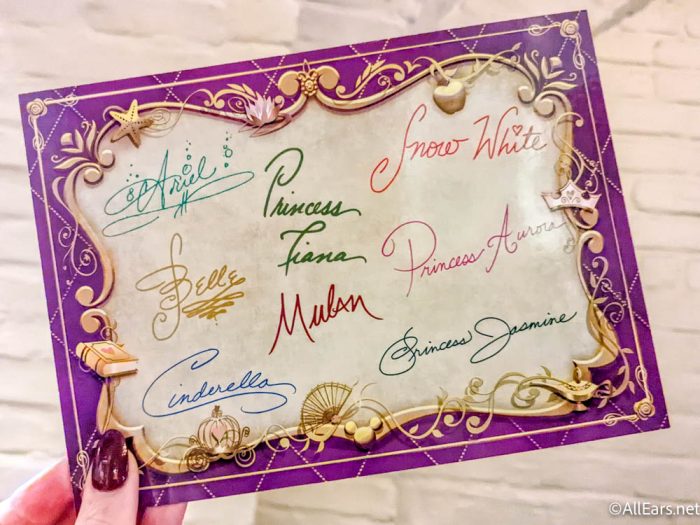 Ariel
Princess
Tiana
Snow White
Belle
Mulan
Princess Aurora
Cinderella
Princess Jasmine
©AllEars.net